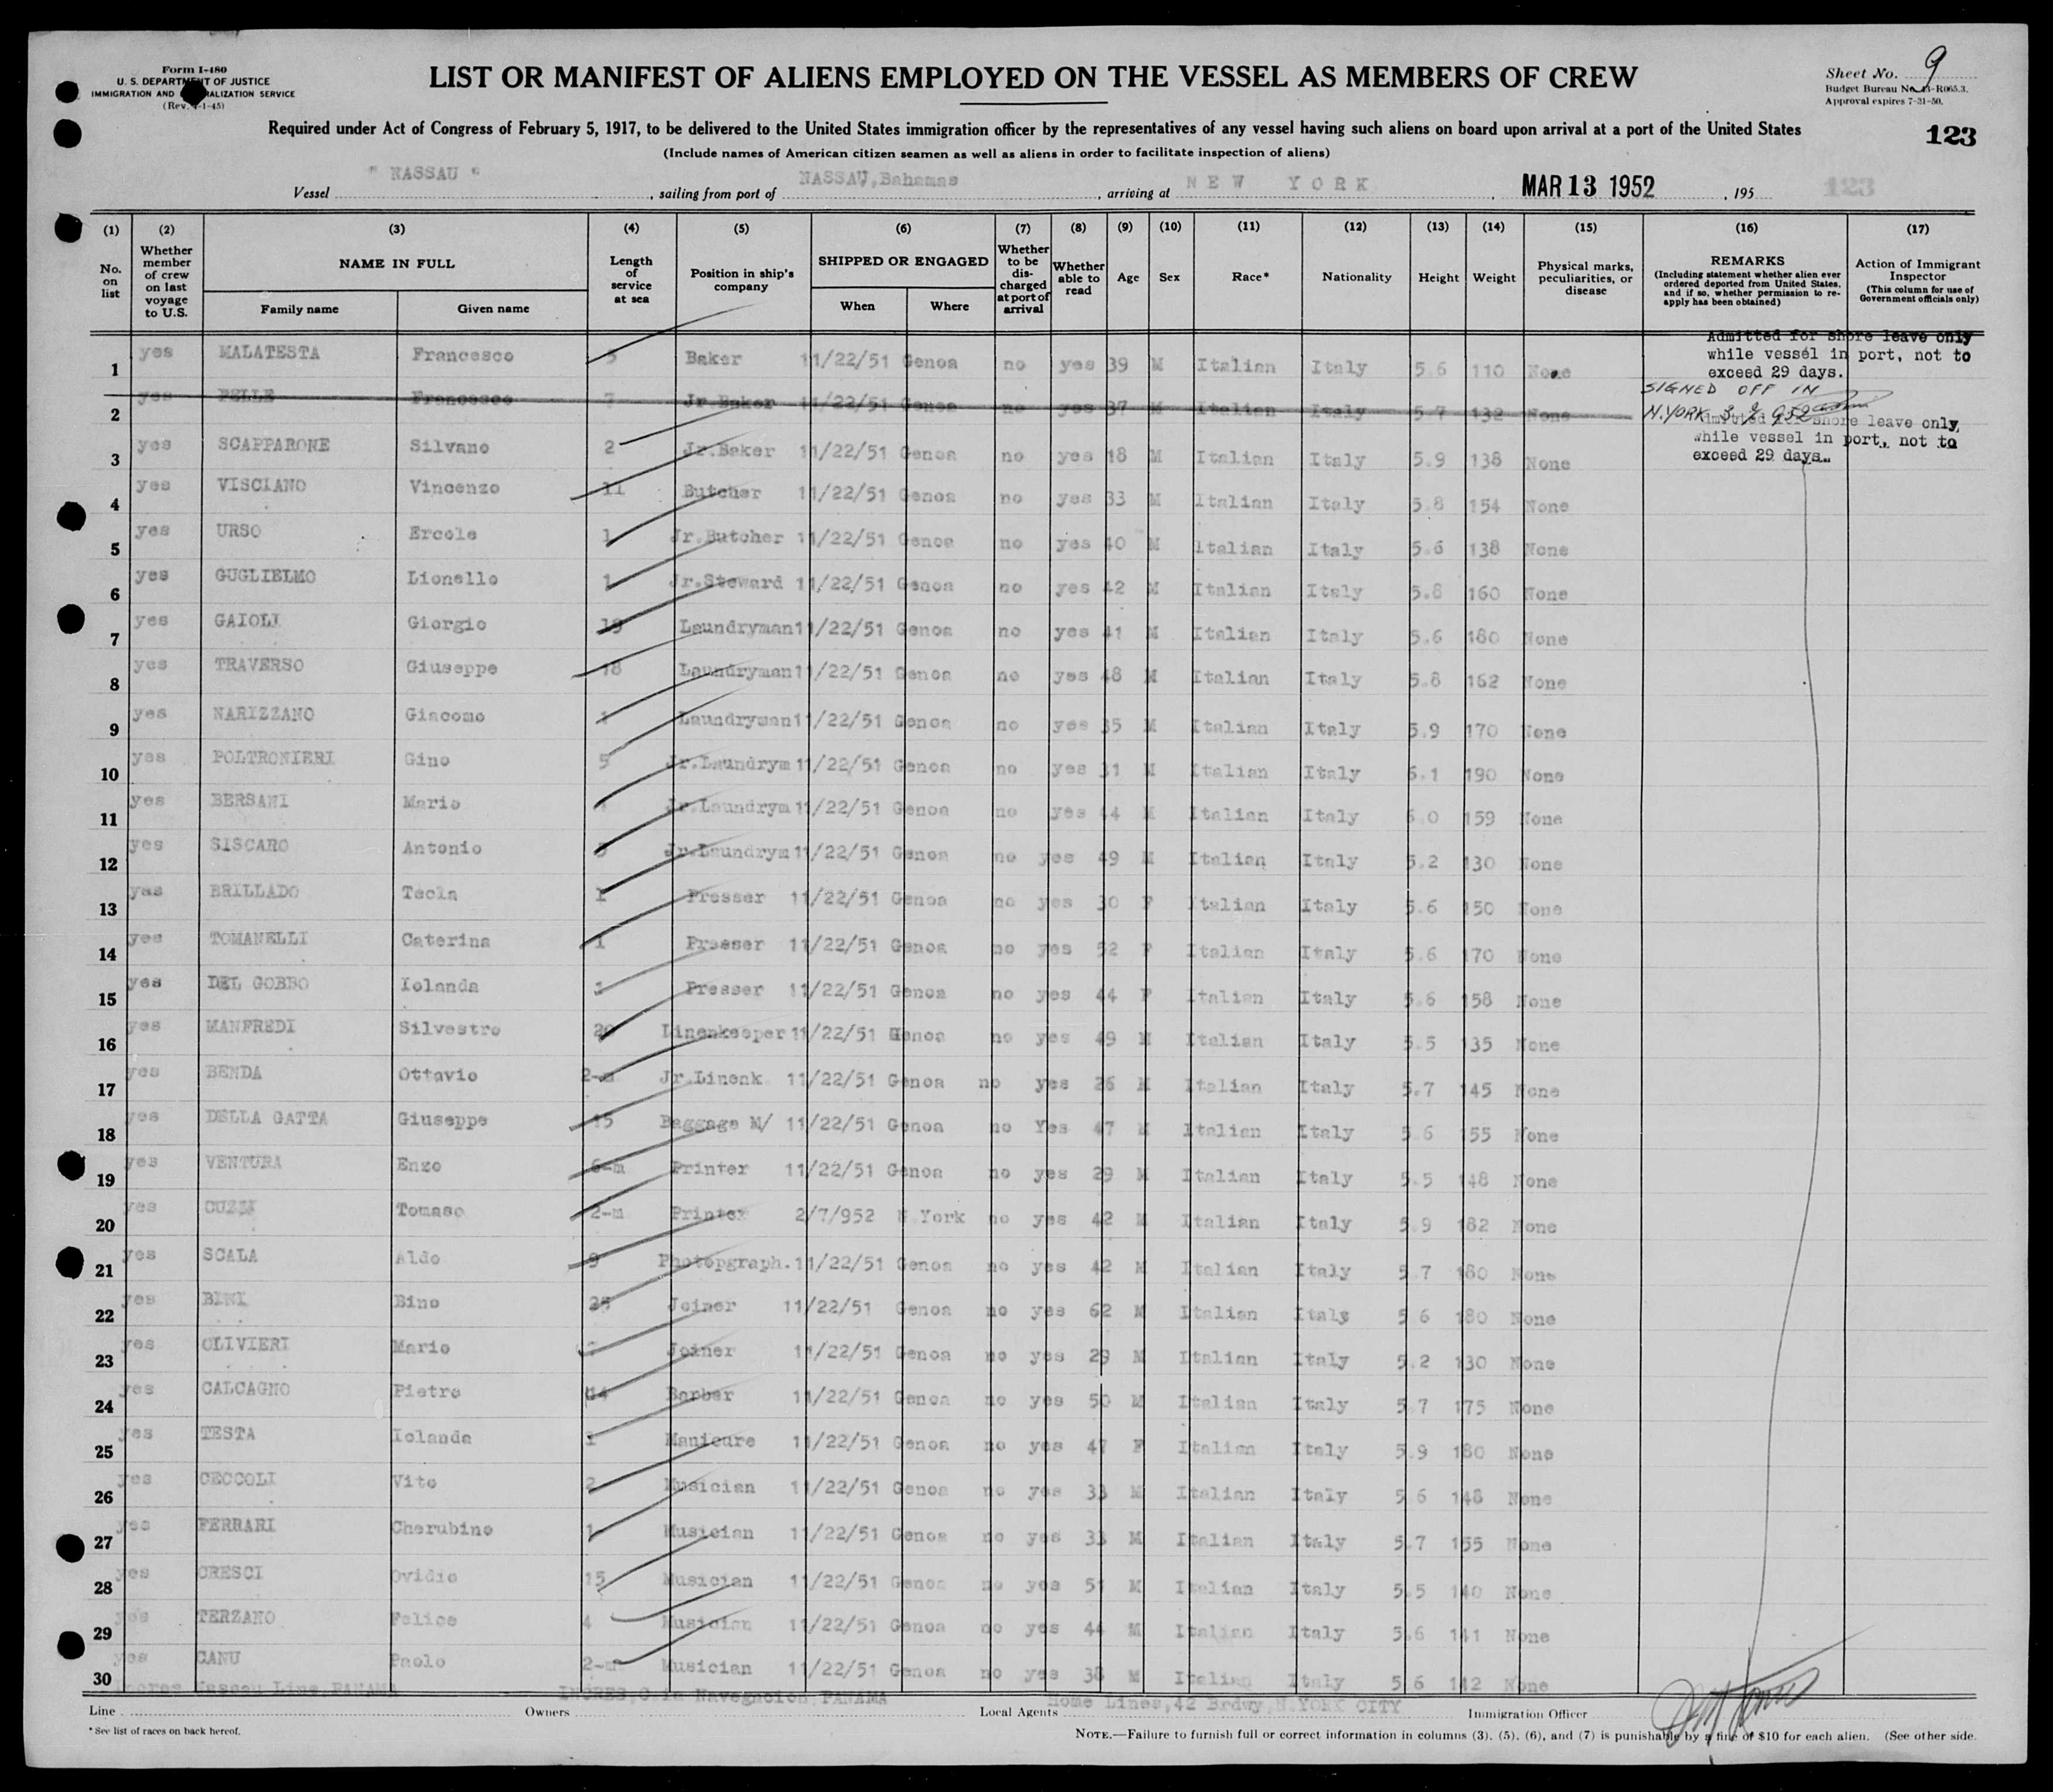 Form I-480
U. S. DEPARTMENT OF JUSTICE
IMMIGRATION AND NATURALIZATION SERVICE
(Rev. 4-1-45)
LIST OR MANIFEST OF ALIENS EMPLOYED ON THE VESSEL AS MEMBERS OF CREW
Sheet No. 9
Budget Bureau No. 43-R065.3.
Approval expires 7-31-50.
Required under Act of Congress of February 5, 1917, to be delivered to the United States immigration officer by the representatives of any vessel having such aliens on board upon arrival at a port of the United States
123
(Include names of American citizen seamen as well as aliens in order to facilitate inspection of aliens)
Vessel " NASSAU " , sailing from port of NASSAU,Bahamas , arriving at NEW YORK , MAR 13 1952 , 195 123
(1) (2) (3) (4) (5) (6) (7) (8) (9) (10) (11) (12) (13) (14) (15) (16) (17)
No. on list Whether member of crew on last voyage to U.S. NAME IN FULL Family name Given name Length of service at sea Position in ship's company SHIPPED OR ENGAGED When Where Whether to be discharged at port of arrival Whether able to read Age Sex Race* Nationality Height Weight Physical marks, peculiarities, or disease REMARKS (Including statement whether alien ever ordered deported from United States, and if so, whether permission to reapply has been obtained) Action of Immigrant Inspector (This column for use of Government officials only)
1 yes MALATESTA Francesco 5 Baker 11/22/51 Genoa no yes 39 M Italian Italy 5.6 110 None Admitted for shore leave only while vessel in port, not to exceed 29 days.
2 yes PELLE Francesco 7 Jr.Baker 11/22/51 Genoa no yes 37 M Italian Italy 5.7 132 None SIGNED OFF IN N.YORK
3 yes SCAPPARONE Silvano 2 Jr.Baker 11/22/51 Genoa no yes 18 M Italian Italy 5.9 138 None Admitted for shore leave only, while vessel in port, not to exceed 29 days.
4 yes VISCIANO Vincenzo 11 Butcher 11/22/51 Genoa no yes 33 M Italian Italy 5.8 154 None
5 yes URSO Ercole 1 Jr.Butcher 11/22/51 Genoa no yes 40 M Italian Italy 5.6 138 None
6 yes GUGLIELMO Lionello 1 Jr.Steward 11/22/51 Genoa no yes 42 M Italian Italy 5.8 160 None
7 yes GAIOLI Giorgio 19 Laundryman 11/22/51 Genoa no yes 41 M Italian Italy 5.6 180 None
8 yes TRAVERSO Giuseppe 18 Laundryman 11/22/51 Genoa no yes 48 M Italian Italy 5.8 162 None
9 yes NARIZZANO Giacomo 1 Laundryman 11/22/51 Genoa no yes 35 M Italian Italy 5.9 170 None
10 yes POLTRONIERI Gino 5 Jr.Laundrym 11/22/51 Genoa no yes 31 M Italian Italy 6.1 190 None
11 yes BERSANI Mario Jr.Laundrym 11/22/51 Genoa no yes 44 M Italian Italy 6.0 159 None
12 yes SISCARO Antonio 3 Jr.Laundrym 11/22/51 Genoa no yes 49 M Italian Italy 5.2 130 None
13 yes BRILLADO Tecla 1 Presser 11/22/51 Genoa no yes 30 F Italian Italy 5.6 150 None
14 yes TOMANELLI Caterina 1 Presser 11/22/51 Genoa no yes 52 F Italian Italy 5.6 170 None
15 yes DEL GOBBO Iolanda 1 Presser 11/22/51 Genoa no yes 44 F Italian Italy 5.6 158 None
16 yes MANFREDI Silvestro 20 Linenkeeper 11/22/51 Genoa no yes 49 M Italian Italy 5.5 135 None
17 yes BENDA Ottavio 2-m Jr.Linenk. 11/22/51 Genoa no yes 26 M Italian Italy 5.7 145 None
18 yes DELLA GATTA Giuseppe 15 Baggage M/ 11/22/51 Genoa no Yes 47 M Italian Italy 5.6 155 None
19 yes VENTURA Enzo 6-m Printer 11/22/51 Genoa no yes 29 M Italian Italy 5.5 148 None
20 yes CUZZI Tomaso 2-m Printer 2/7/952 N.York no yes 42 M Italian Italy 5.9 182 None
21 yes SCALA Aldo 9 Photopgraph. 11/22/51 Genoa no yes 42 M Italian Italy 5.7 180 None
22 yes BINI Bino 25 Joiner 11/22/51 Genoa no yes 62 M Italian Italy 5.6 180 None
23 yes OLIVIERI Mario Joiner 11/22/51 Genoa no yes 29 M Italian Italy 5.2 130 None
24 yes CALCAGNO Pietro 14 Barber 11/22/51 Genoa no yes 50 M Italian Italy 5.7 175 None
25 yes TESTA Iolanda 1 Manicure 11/22/51 Genoa no yes 47 F Italian Italy 5.9 180 None
26 yes CECCOLI Vito 2 Musician 11/22/51 Genoa no yes 33 M Italian Italy 5.6 148 None
27 yes FERRARI Cherubino 1 Musician 11/22/51 Genoa no yes 33 M Italian Italy 5.7 155 None
28 yes CRESCI Ovidio 15 Musician 11/22/51 Genoa no yes 51 M Italian Italy 5.5 140 None
29 yes TERZANO Felice 4 Musician 11/22/51 Genoa no yes 44 M Italian Italy 5.6 141 None
30 yes CANU Paolo 2-m Musician 11/22/51 Genoa no yes 38 M Italian Italy 5.6 142 None
Line Incres Nassau Line,PANAMA Owners INCRES,C.ia Navegacion,PANAMA Local Agents Home Lines,42 Brdwy,N.YORK CITY Immigration Officer
*See list of races on back hereof.
NOTE.—Failure to furnish full or correct information in columns (3), (5), (6), and (7) is punishable by a fine of $10 for each alien. (See other side.